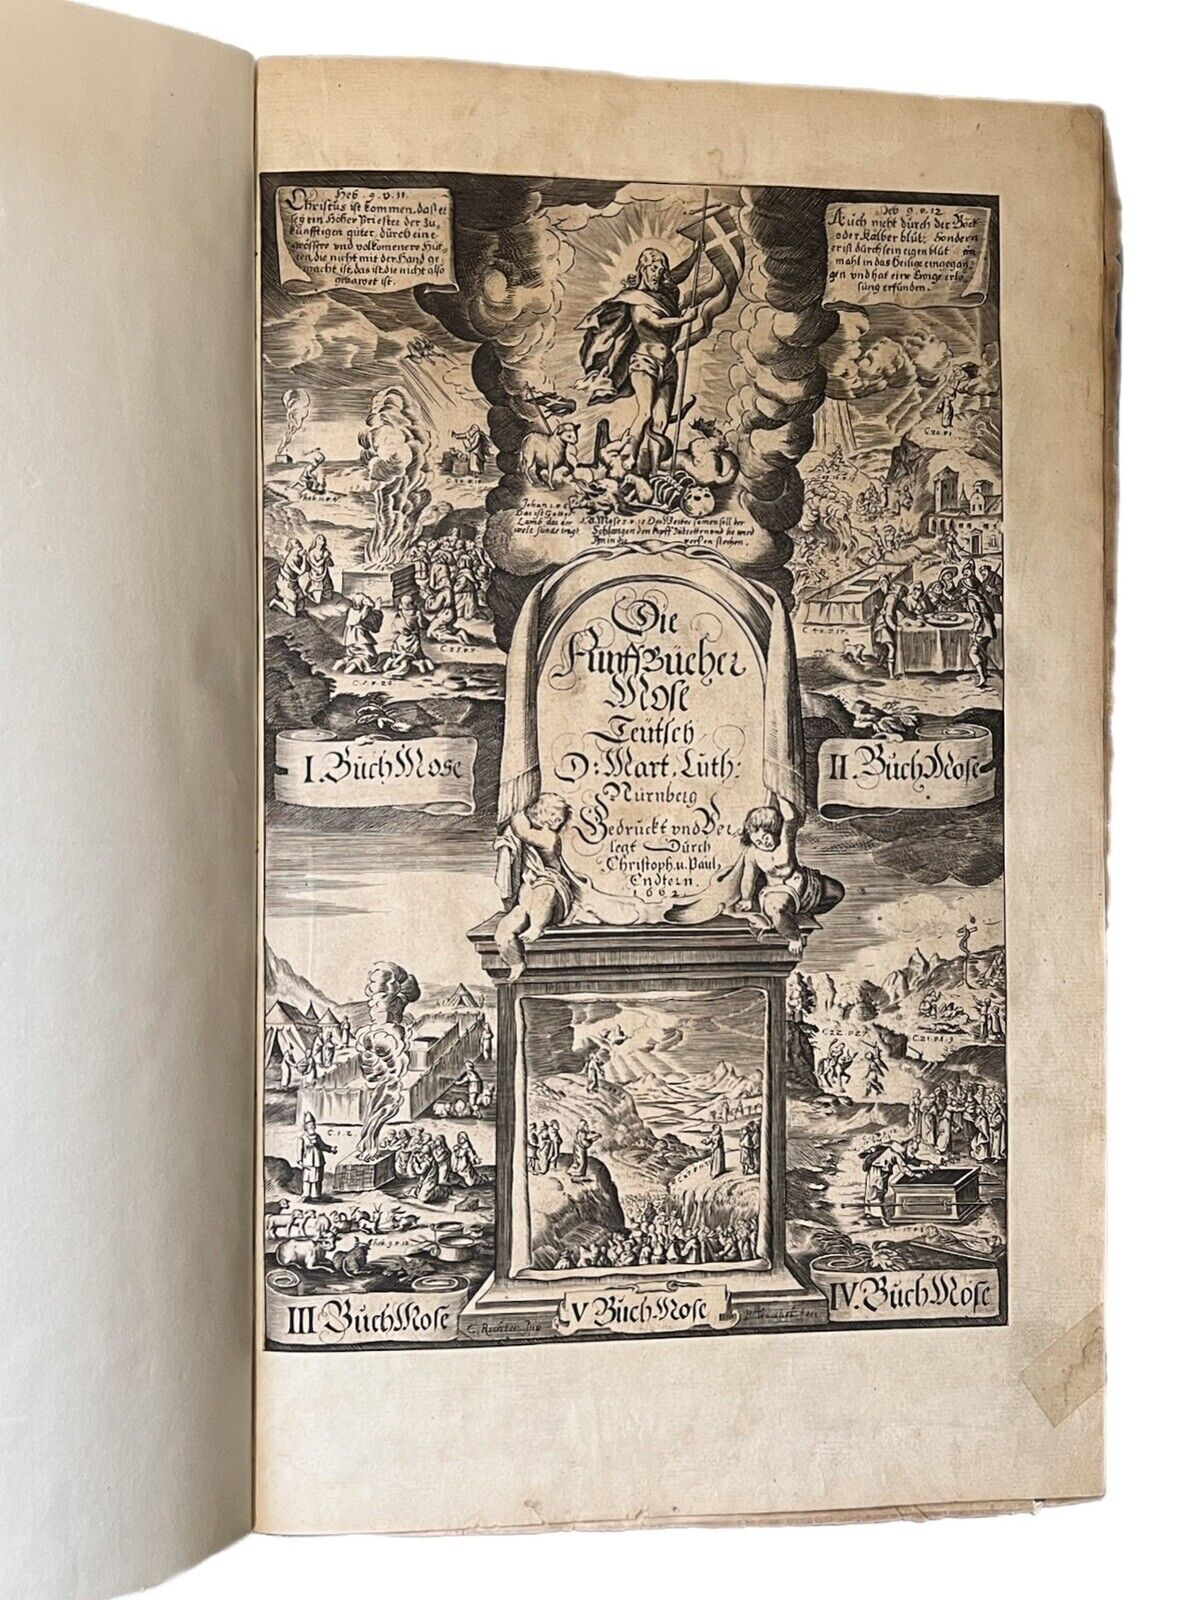 Heb. 9. v. 11.
Christus ist kommen, daß er
sey ein Hoher Priester der zu,
künfftigen güter, dürch eine
grössere vnd volkomenere Hüt,
ten, die nicht mit der Hand ge
macht ist, das ist, die nicht also
gebawet ist.
Heb 9. v. 12
Auch nicht dürch der Böck
oder Kälber blüt, Sondern
er ist dürch sein eigen blüt ein
mahl in das Heilige eingegan,
gen vnd hat eine Ewige erlö
süng erfünden.
C. 20. v. 1
Johan 1. v.
Das ist Gottes
Lamb das der
welt sünde trägt
Moses
Des Weibes samen soll der
Schlangen den Kopff
vnd sie wird
Ihm in die
versen stechen.
Die
Fünff Bücher
Mose
Teütsch
D: Mart. Lüth:
Nürnberg
Gedrückt vnd Ver,
legt Dürch
Christoph. u. Paul,
Endtern.
1662.
C. 40. v. 17.
I. Büch Mose
II. Büch Mose
C. 22. v. 27.
C. 21. v. 9
C. 1. 2.
Heb. 9. v. 12.
III Büch Mose
V Büch Mose
IV. Büch Mose
C. Richter. Inv